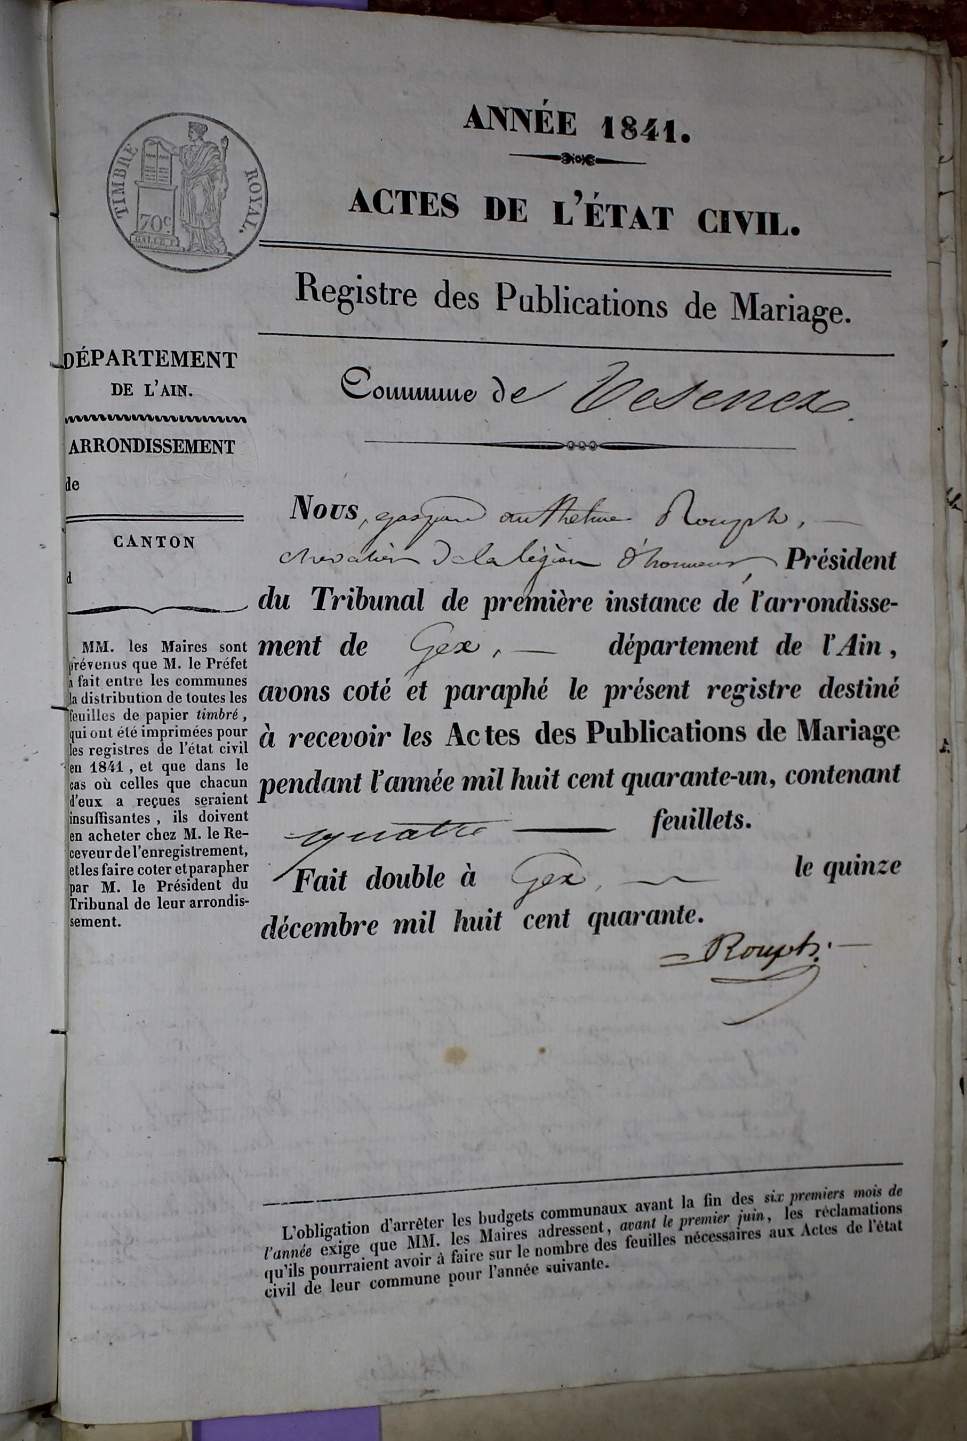 TIMBRE ROYAL.
70c
ANNÉE 1841.
ACTES DE L'ÉTAT CIVIL.
Registre des Publications de Mariage.
DÉPARTEMENT
DE L'AIN.
ARRONDISSEMENT
de
CANTON
d
MM. les Maires sont
prévenus que M. le Préfet
a fait entre les communes
la distribution de toutes les
feuilles de papier timbré,
qui ont été imprimées pour
les registres de l'état civil
en 1841, et que dans le
cas où celles que chacun
d'eux a reçues seraient
insuffisantes, ils doivent
en acheter chez M. le Re-
ceveur de l'enregistrement,
et les faire coter et parapher
par M. le Président du
Tribunal de leur arrondis-
sement.
Commune de Vesenex
Nous, gaspard anthelme Rouph,
chevalier de la légion d'honneur, Président
du Tribunal de première instance de l'arrondisse-
ment de Gex, département de l'Ain,
avons coté et paraphé le présent registre destiné
à recevoir les Actes des Publications de Mariage
pendant l'année mil huit cent quarante-un, contenant
quatre feuillets.
Fait double à Gex, le quinze
décembre mil huit cent quarante.
Rouph.
L'obligation d'arrêter les budgets communaux avant la fin des six premiers mois de
l'année exige que MM. les Maires adressent, avant le premier juin, les réclamations
qu'ils pourraient avoir à faire sur le nombre des feuilles nécessaires aux Actes de l'état
civil de leur commune pour l'année suivante.